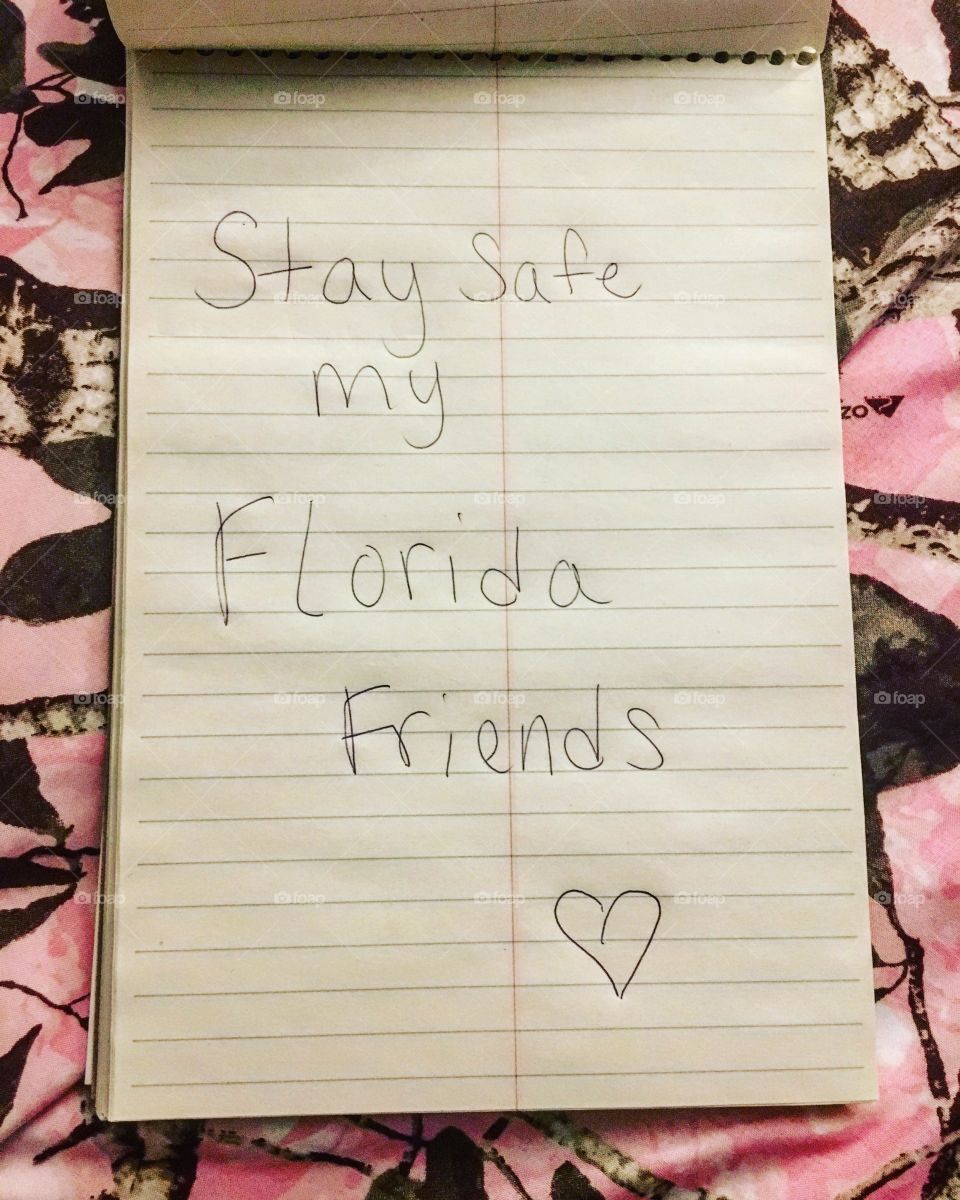 Stay Safe
my
Florida
Friends
foap
zo